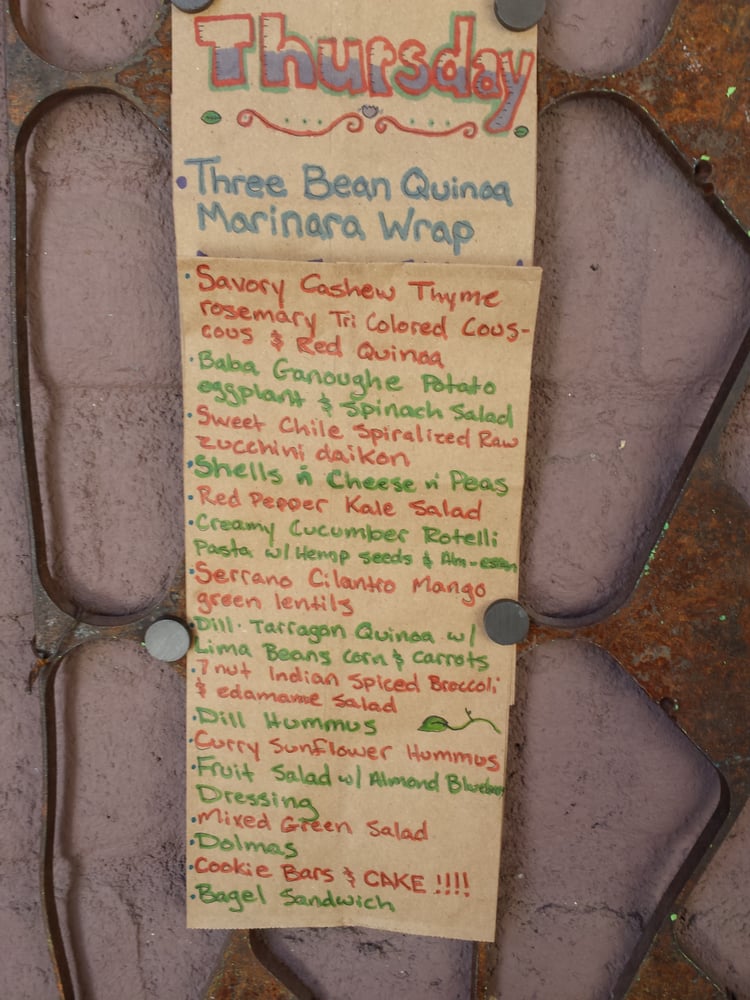 Thursday
• Three Bean Quinoa
Marinara Wrap
• Savory Cashew Thyme
rosemary Tri Colored Cous-
cous & Red Quinoa
• Baba Ganoughe Potato
eggplant & Spinach Salad
• Sweet Chile Spiralized Raw
zucchini daikon
• Shells n Cheese n' Peas
• Red Pepper Kale Salad
• Creamy Cucumber Rotelli
Pasta w/ Hemp seeds & Alm-esan
• Serrano Cilantro Mango
green lentils
• Dill · Tarragon Quinoa w/
Lima Beans corn & carrots
• 7 nut Indian Spiced Broccoli
& edamame Salad
• Dill Hummus
• Curry Sunflower Hummus
• Fruit Salad w/ Almond Blueberry
Dressing
• Mixed Green Salad
• Dolmas
• Cookie Bars & CAKE !!!!
• Bagel Sandwich